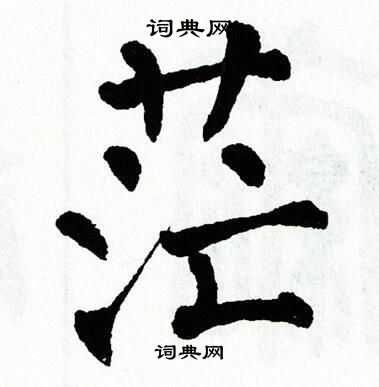 词典网
茫
词典网